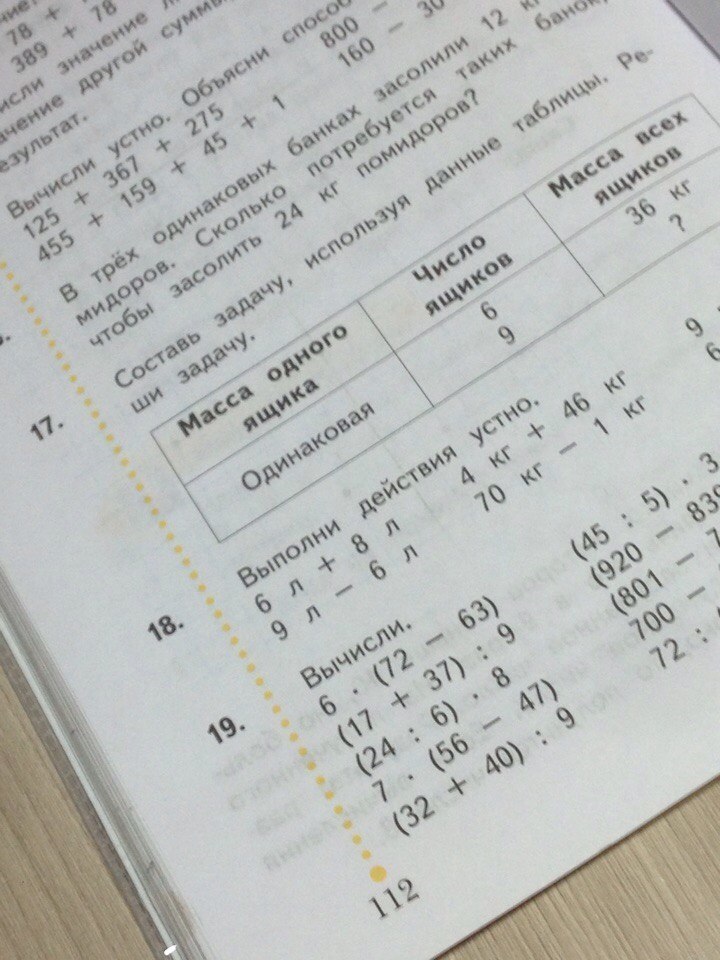 78 +
389 + 78
значение
ачение другой суммы
езультат.
Вычисли устно. Объясни способ
125 + 367 + 275
800 −
455 + 159 + 45 + 1
160 − 30
В трёх одинаковых банках засолили 12 кг
мидоров. Сколько потребуется таких банок,
чтобы засолить 24 кг помидоров?
17. Составь задачу, используя данные таблицы. Ре-
ши задачу.
Масса одного ящика
Число ящиков
Масса всех ящиков
Одинаковая
6
9
36 кг
?
18. Выполни действия устно.
6 л + 8 л
4 кг + 46 кг
9
9 л − 6 л
70 кг − 1 кг
6
19. Вычисли.
6 · (72 − 63)
(45 : 5) · 3
(17 + 37) : 9
(920 − 839
(24 : 6) · 8
(801 − 7
7 · (56 − 47)
700 −
(32 + 40) : 9
72 :
112